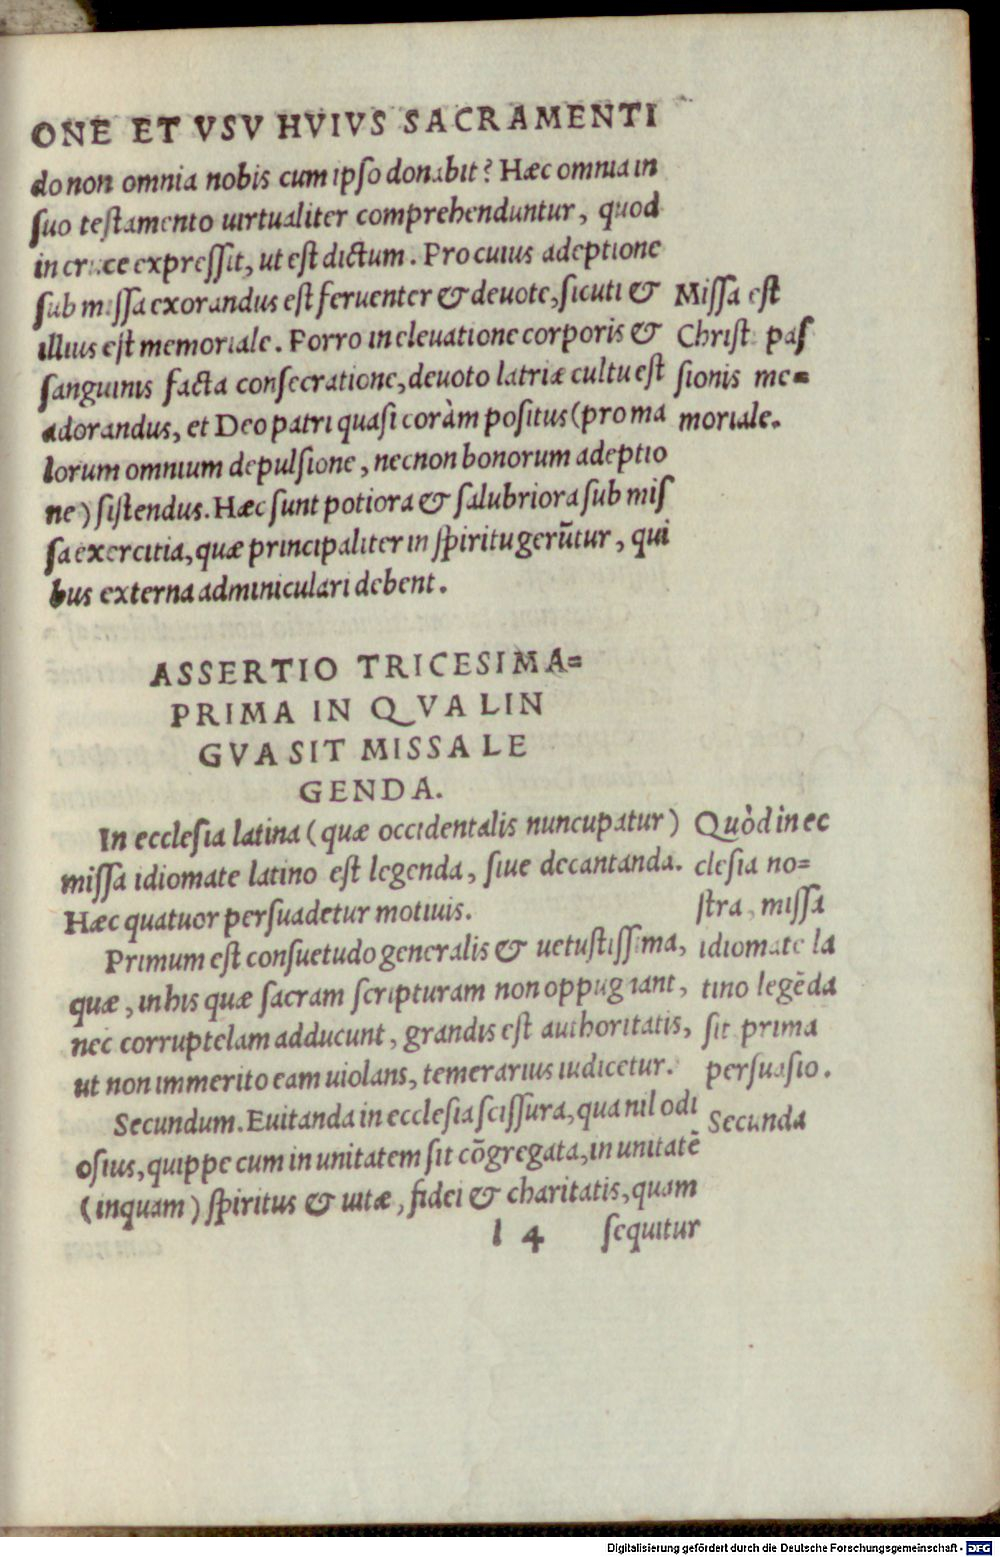 ONE ET VSV HVIVS SACRAMENTI
do non omnia nobis cum ipſo donabit? Hæc omnia in
ſuo teſtamento uirtualiter comprehenduntur, quod
in cruce expreſſit, ut eſt dictum. Pro cuius adeptione
ſub miſſa exorandus eſt feruenter & deuote, ſicuti &
illius eſt memoriale. Porro in eleuatione corporis &
ſanguinis facta conſecratione, deuoto latriæ cultu eſt
adorandus, et Deo patri quaſi coràm poſitus (pro ma
lorum omnium depulſione, necnon bonorum adeptio
ne) ſiſtendus. Hæc ſunt potiora & ſalubriora ſub miſ
ſa exercitia, quæ principaliter in ſpiritu gerūtur, qui
bus externa adminiculari debent.
Miſſa eſt
Chriſti paſ
ſionis me=
moriale.
ASSERTIO TRICESIMA=
PRIMA IN QVA LIN
GVA SIT MISSA LE
GENDA.
In eccleſia latina (quæ occidentalis nuncupatur)
miſſa idiomate latino eſt legenda, ſiue decantanda.
Hæc quatuor perſuadetur motiuis.
Primum eſt conſuetudo generalis & uetuſtiſſima,
quæ, in his quæ ſacram ſcripturam non oppugnant,
nec corruptelam adducunt, grandis eſt authoritatis,
ut non immerito eam uiolans, temerarius iudicetur.
Secundum. Euitanda in eccleſia ſciſſura, qua nil odi
oſius, quippe cum in unitatem ſit cōgregata, in unitatē
(inquam) ſpiritus & uitæ, fidei & charitatis, quam
Quòd in ec
cleſia no=
ſtra, miſſa
idiomate la
tino legēda
ſit prima
perſuaſio.
Secunda
l 4 ſequitur
Digitalisierung gefördert durch die Deutsche Forschungsgemeinschaft - DFG